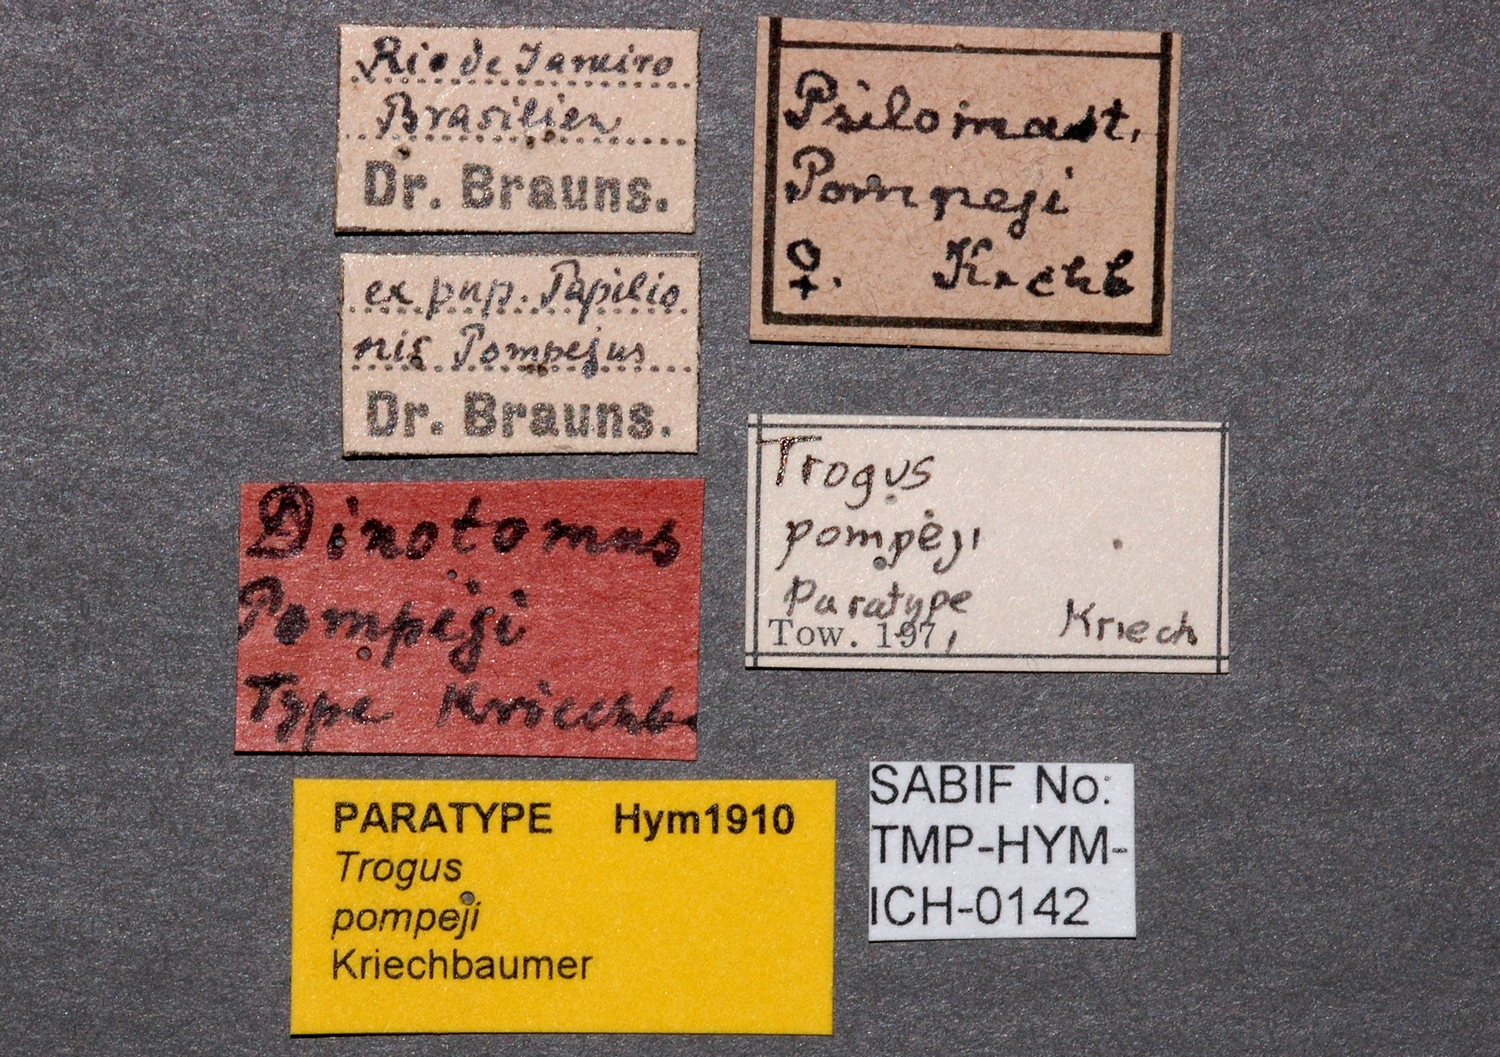 Rio de Janeiro
Brasilien
Dr. Brauns.
ex pup. Papilio
nis Pompejus
Dr. Brauns.
Dinotomus
Pompeji
Type Kriechb.
PARATYPE Hym1910
Trogus
pompeji
Kriechbaumer
Psilomast.
Pompeji
♀. Krchb
Trogus
pompeji
Paratype
Tow. 197, Kriech
SABIF No:
TMP-HYM-
ICH-0142